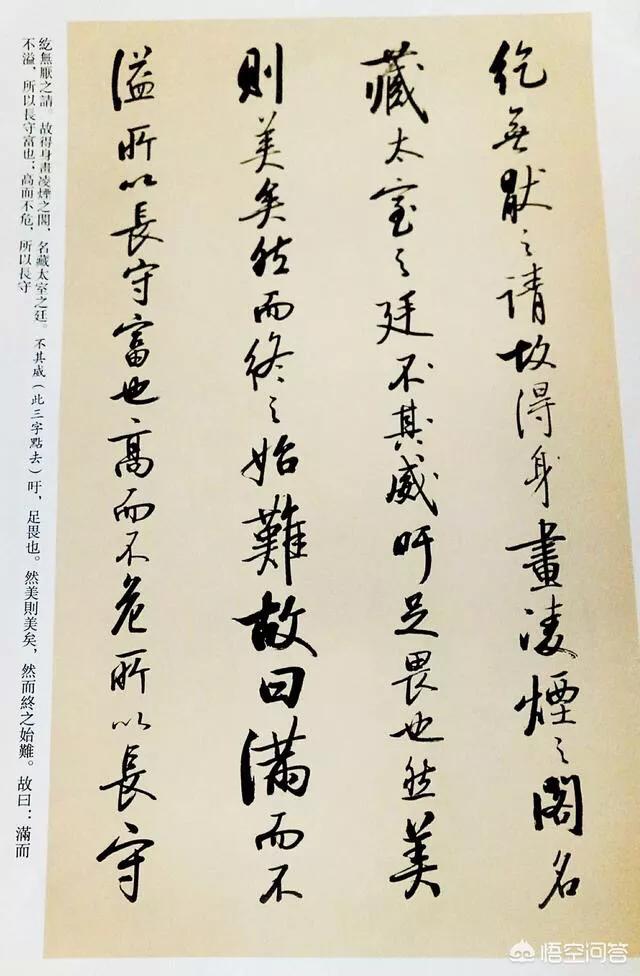 紇無猒之請故得身畫凌煙之閣名
藏太室之廷不其威吁足畏也然美
則美矣然而終之始難故曰滿而不
溢所以長守富也高而不危所以長守
紇無厭之請。故得身畫凌煙之閣、名藏太室之廷。不其威（此三字點去）吁，足畏也。然美則美矣，然而終之始難。故曰：滿而
不溢，所以長守富也；高而不危，所以長守
悟空问答